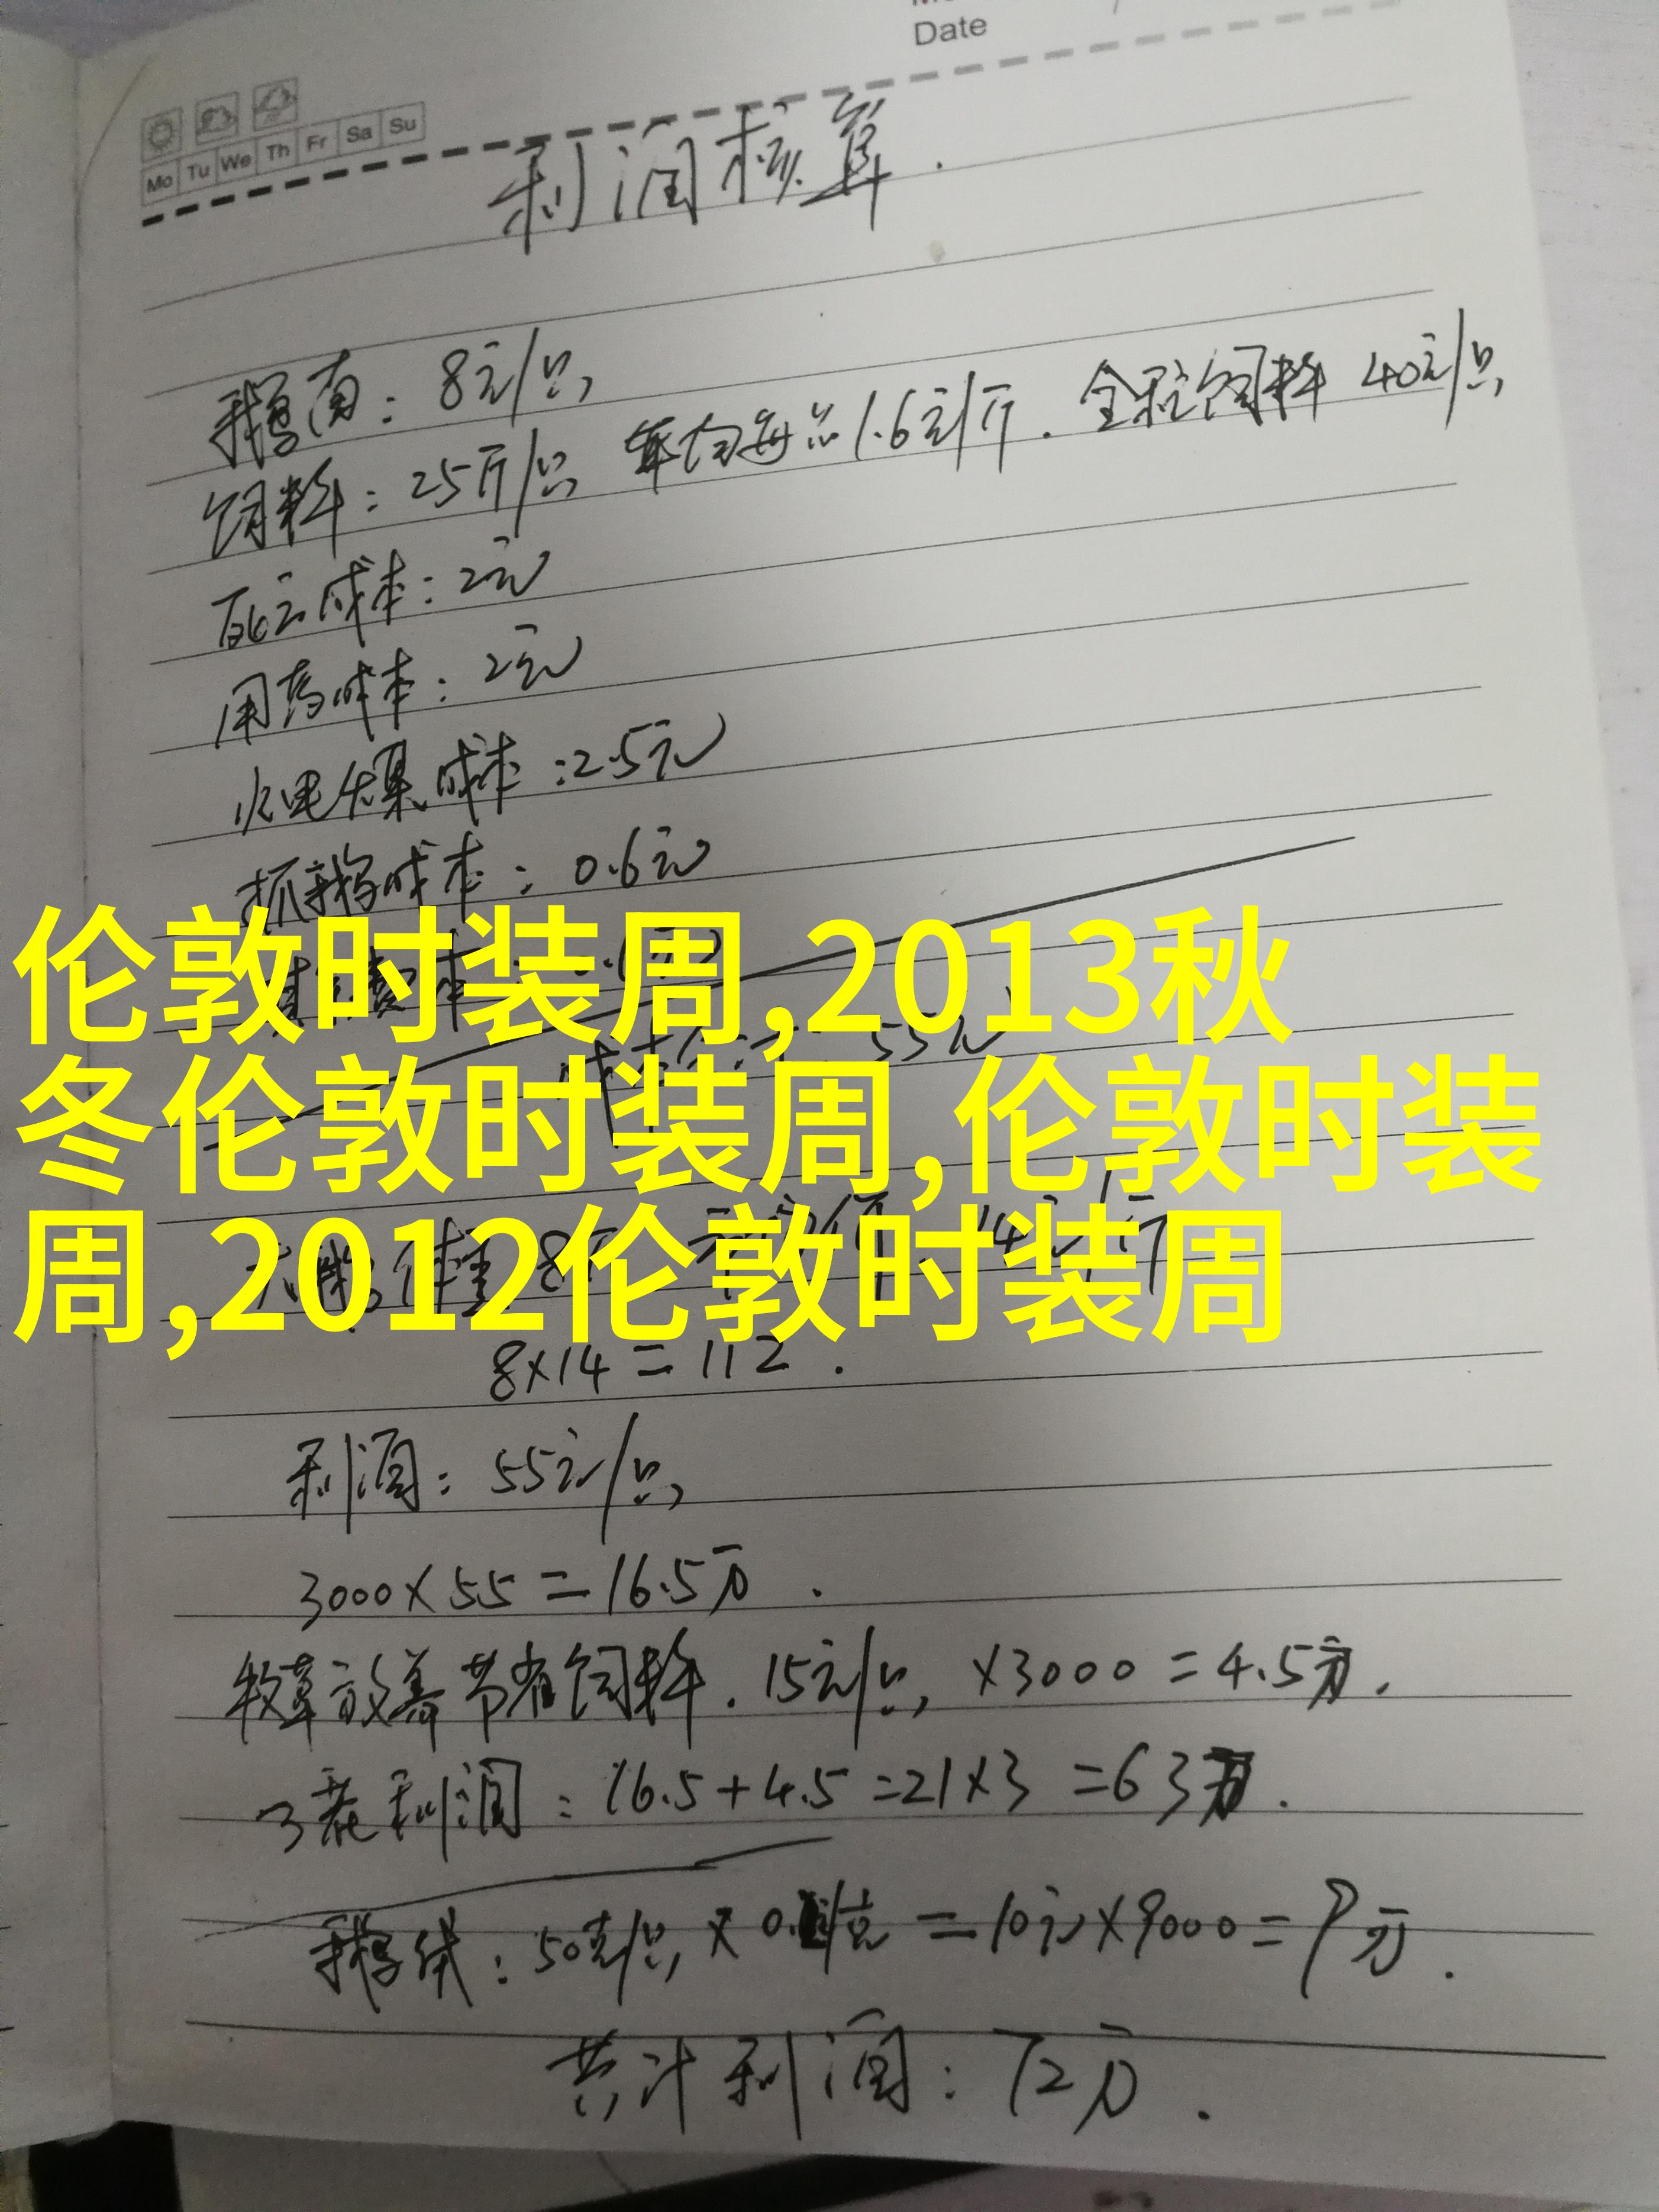 Date
Mo Tu We Th Fr Sa Su
利润核算.
鹅苗: 8元/只
饲料: 25斤/只 平均每只1.6元/斤. 全程饲料 40元/只
死亡成本: 2元
用药成本: 2元
水电煤成本: 2.5元
抓鹅成本: 0.6元
伦敦时装周,2013秋
冬伦敦时装周,伦敦时装
周,2012伦敦时装周
8×14=112.
利润: 55元/只
3000×55=16.5万.
牧草放养节省饲料. 15元/只, ×3000=4.5万.
3茬利润: 16.5+4.5=21×3=63万.
鹅绒: 50克/只 × =10元×9000=9万.
共计利润: 72万.